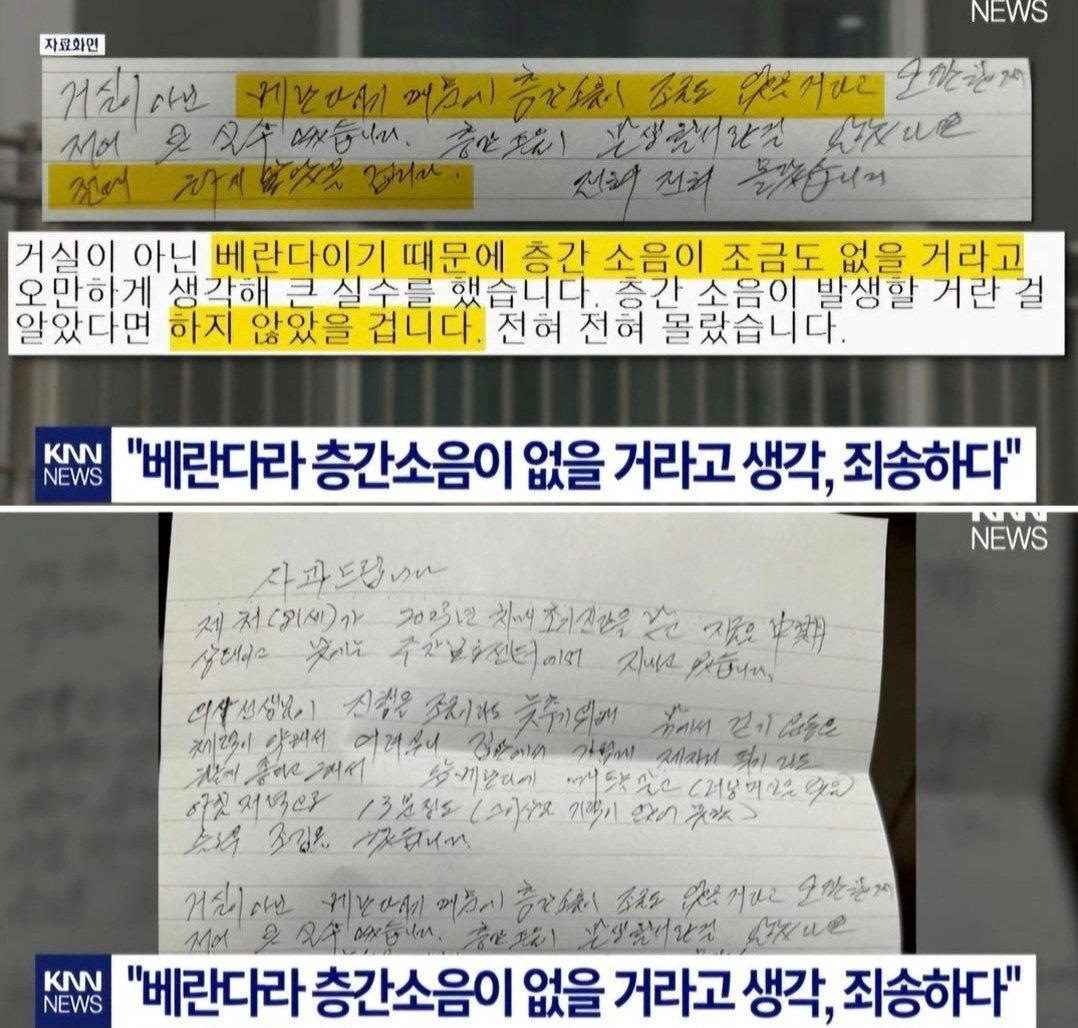 NEWS
자료화면
거실이 아닌 베란다이기 때문에 층간소음이 조금도 없을 거라고
큰 실수 했습니다. 층간소음이 발생할거란걸 알았다면
하지 않았을 겁니다. 전혀 전혀 몰랐습니다
거실이 아닌 베란다이기 때문에 층간 소음이 조금도 없을 거라고
오만하게 생각해 큰 실수를 했습니다. 층간 소음이 발생할 거란 걸
알았다면 하지 않았을 겁니다. 전혀 전혀 몰랐습니다.
KNN
NEWS
"베란다라 층간소음이 없을 거라고 생각, 죄송하다"
KNN
NEWS
사과드립니다
제 처(81세)가 치매 초기진단을 받고 지금은 中期
상태이고 낮에는 주간보호센터에서 지내고 있습니다.
의사선생님이 진행을 조금이라도 늦추기위해 밖에서 걷기 운동은
체력이 약해서 어려우니 집안에서 가볍게 제자리 뛰기라도
좋다고 그래서 매트를 깔고
아침 저녁으로 13분정도
조깅을 했습니다.
거실이 아닌 베란다이기 때문에 층간소음이 조금도 없을 거라고
큰 실수 했습니다. 층간소음이 발생할거란걸 알았다면
KNN
NEWS
"베란다라 층간소음이 없을 거라고 생각, 죄송하다"